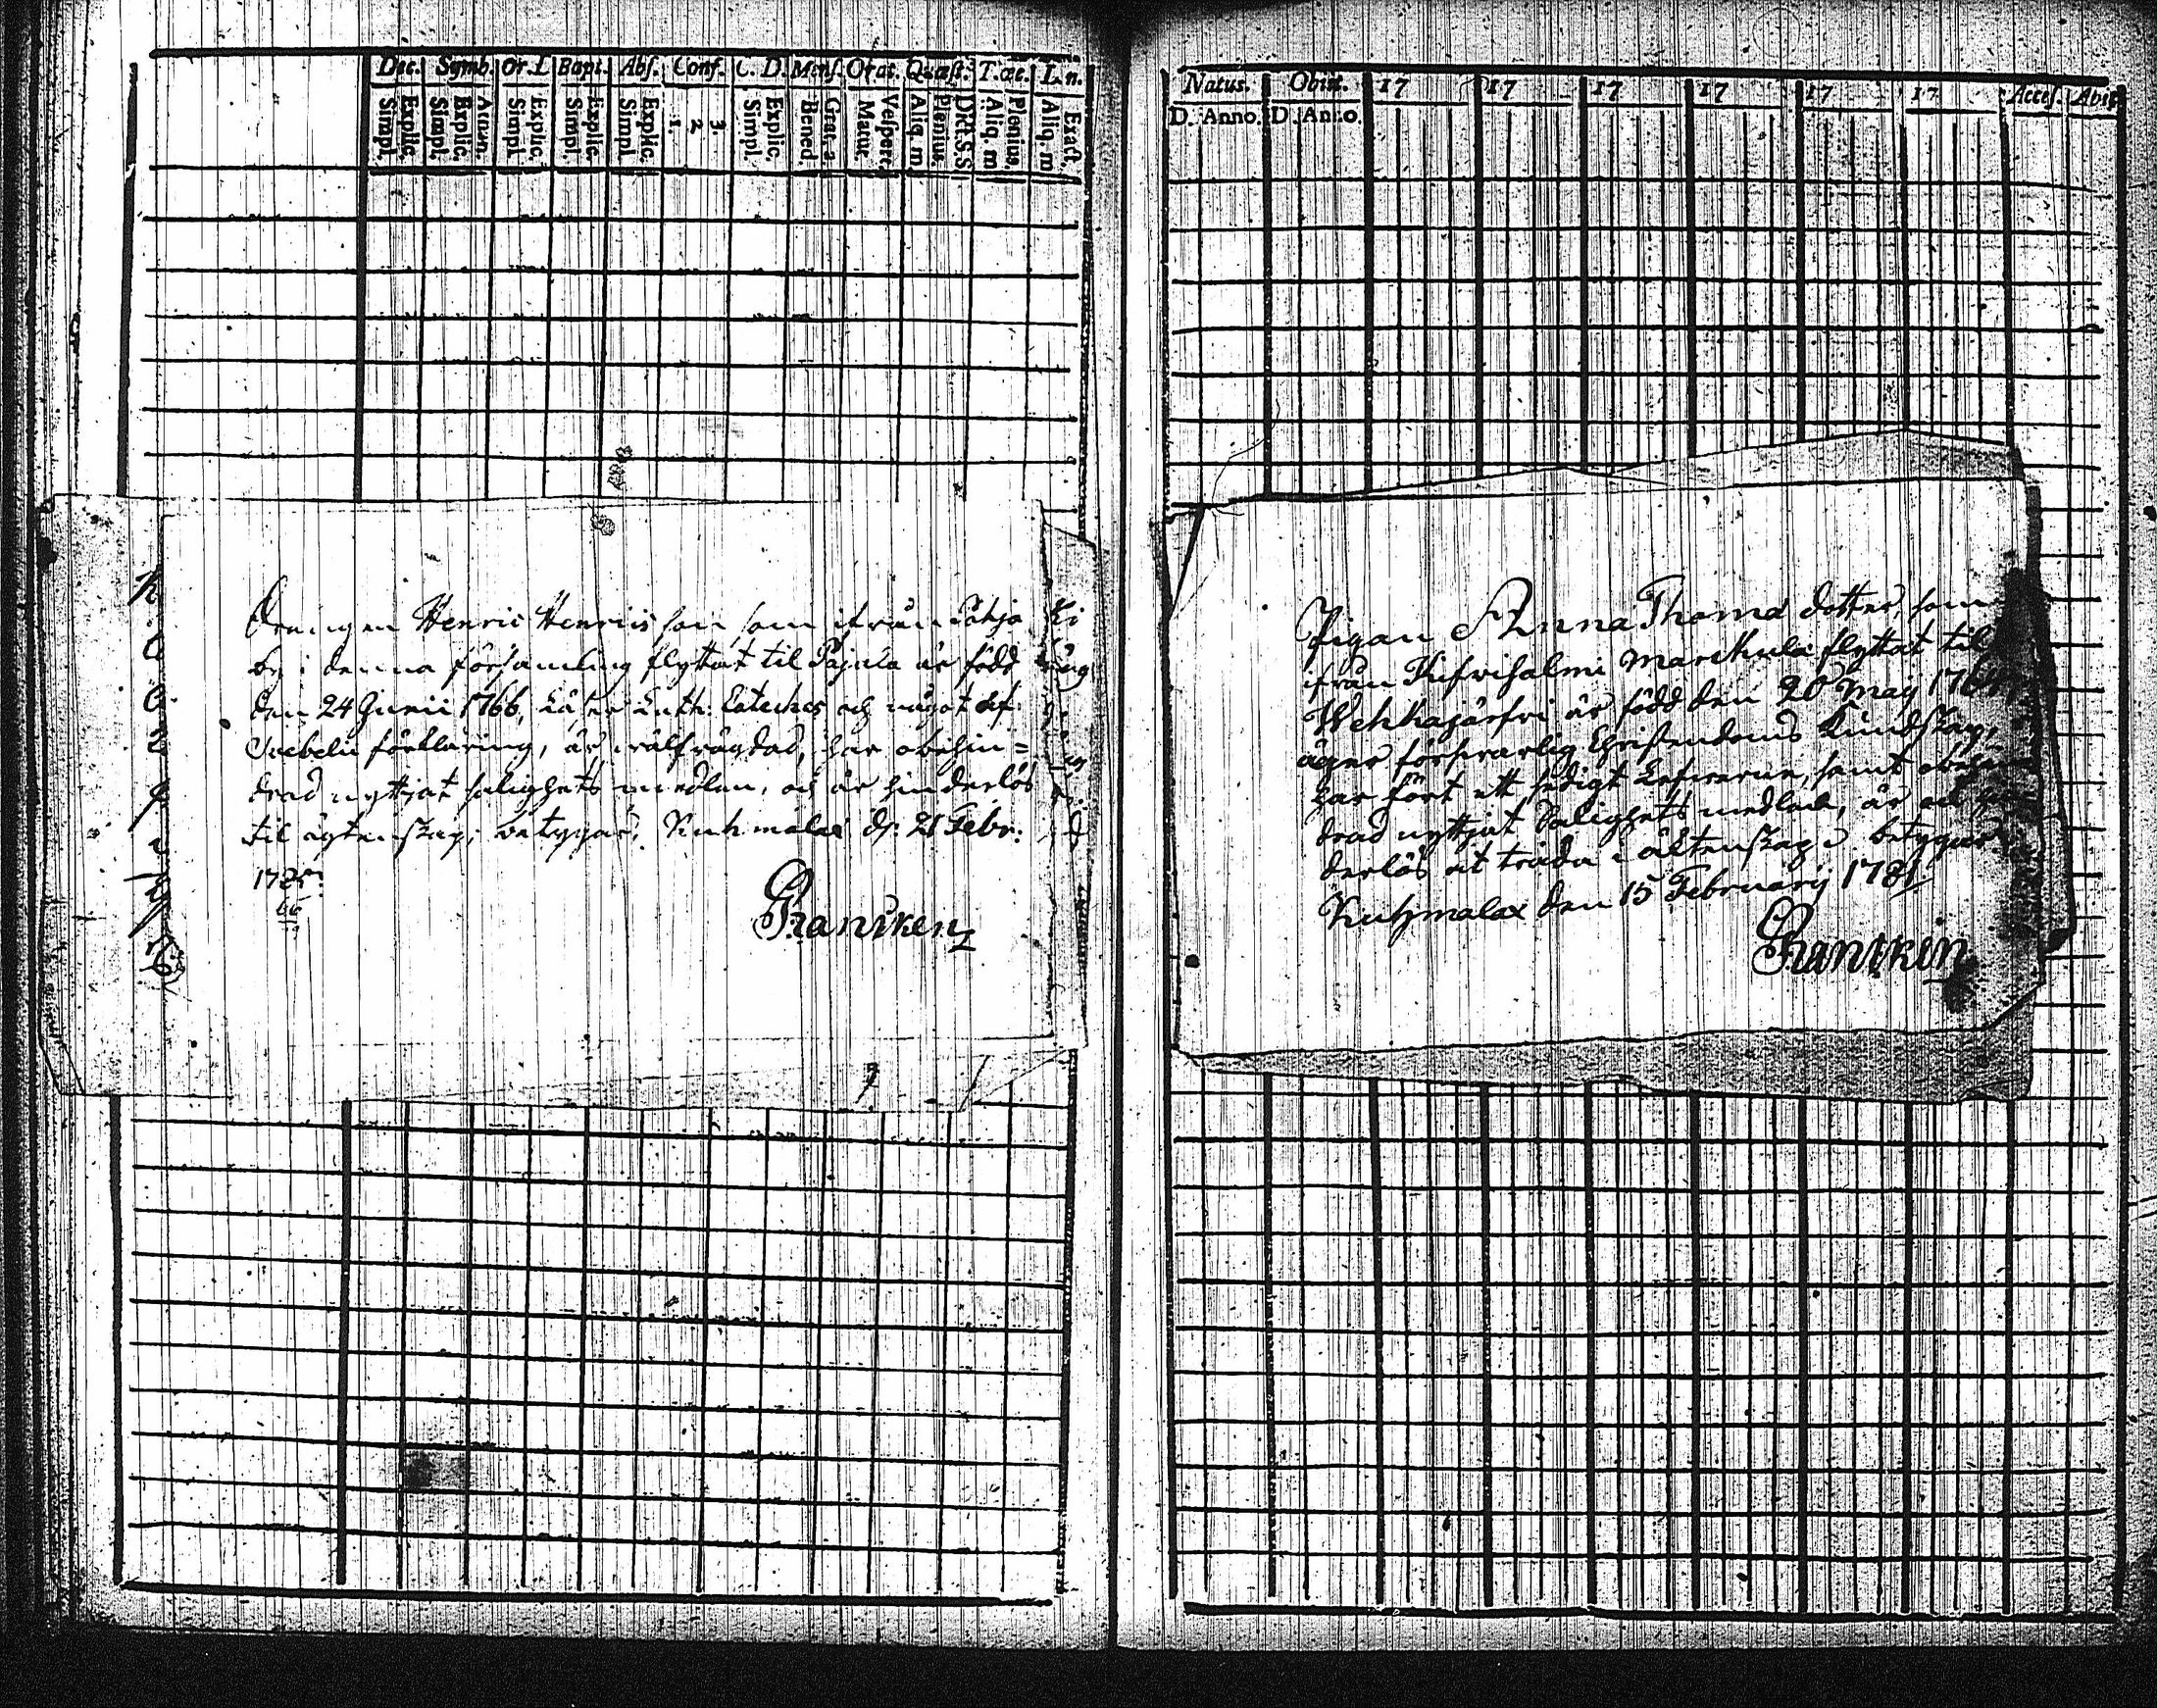 Dec. Symb. Or. D Bapt. Abs. Conf. C. D. Mens. Orat. Quæst. T. œc. L. n.
Simpl. Explic. Simpl. Explic. Athan. Simpl. Explic. Simpl. Explic. Simpl. Explic. 1. 2. 3. Simpl. Explic. Bened. Grat. a. Matut. Vespert. Aliq. m Plenius. Dict. S. S Aliq. m Plenius. Aliq. m Exact.
Drengen Henric Henrics son som ifrån
by i denna församling flyttat til Pajula är född
den 24 Junii 1766, Läser Luth: Cateches och något af
Svebelii förklaring, är välfrägdad, har obehin=
drad nyttjat salighets medlen, och är hinderlös
til ägtenskap; betygar, Kuhmalax d. 21 Febr:
178
Francken
Natus. Obiit. 17 17 17 17 17 17 Acces. Abit
D. Anno. D. Anno.
Pigan Anna Thomæ dotter, som
ifrån flyttat til
Wehkajärfvi är född den 20 Maij 176
äger försvarlig Christendoms Kundskap,
har fört ett sedigt Lefverne, samt obehin
drad nyttjat Salighets medlen, är och
derlös at träda i äktenskap; betygar
Kuhmalax den 15 February 1781
Francken